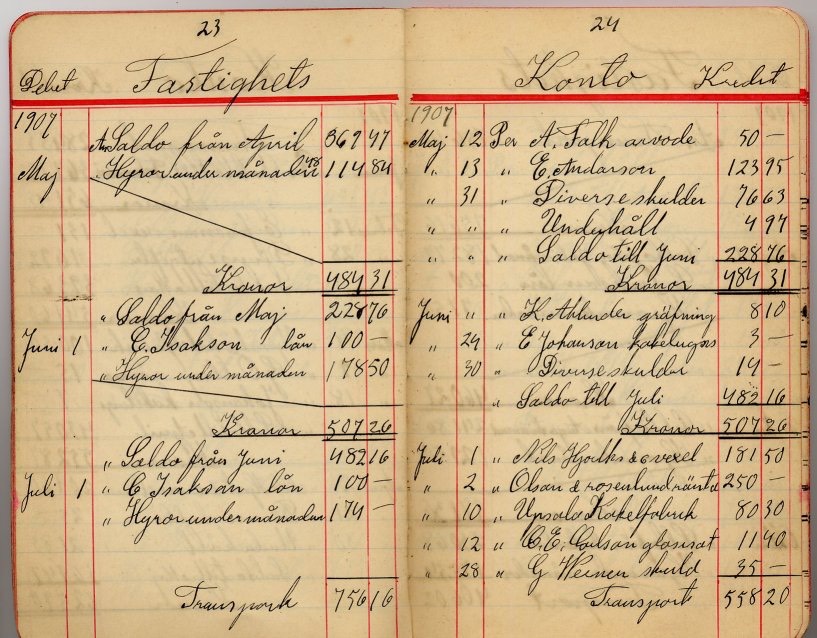 23
Debet Fastighets
1907
An Saldo från April 369 47
Maj " Hyror under månaden 114 84
Kronor 484 31
" Saldo från Maj 228 76
Juni 1 " C. Isakson lån 100 —
" Hyror under månaden 178 50
Kronor 507 26
" Saldo från Juni 482 16
Juli 1 " C Isakson lån 100 —
" Hyror under månaden 174 —
Transport 756 16
24
Konto Kredit
1907
Maj 12 Per A. Falk arvode 50 —
" 13 " E. Anderson 123 95
" 31 " Diverse skulder 76 63
" " " Underhåll 4 97
" " " Saldo till Juni 228 76
Kronor 484 31
Juni " " K. gräfning 8 10
" 29 " E Johanson kakelugns 3 —
" 30 " Diverse skulder 14 —
" Saldo till Juli 482 16
Kronor 507 26
Juli 1 " Nils vexel 181 50
" 2 " Olsan & rosenlund ränta 250 —
" 10 " Upsala Kakelfabrik 80 30
" 12 " C. E. Carlson 11 40
" 28 " G Weinen skuld 35 —
Transport 558 20